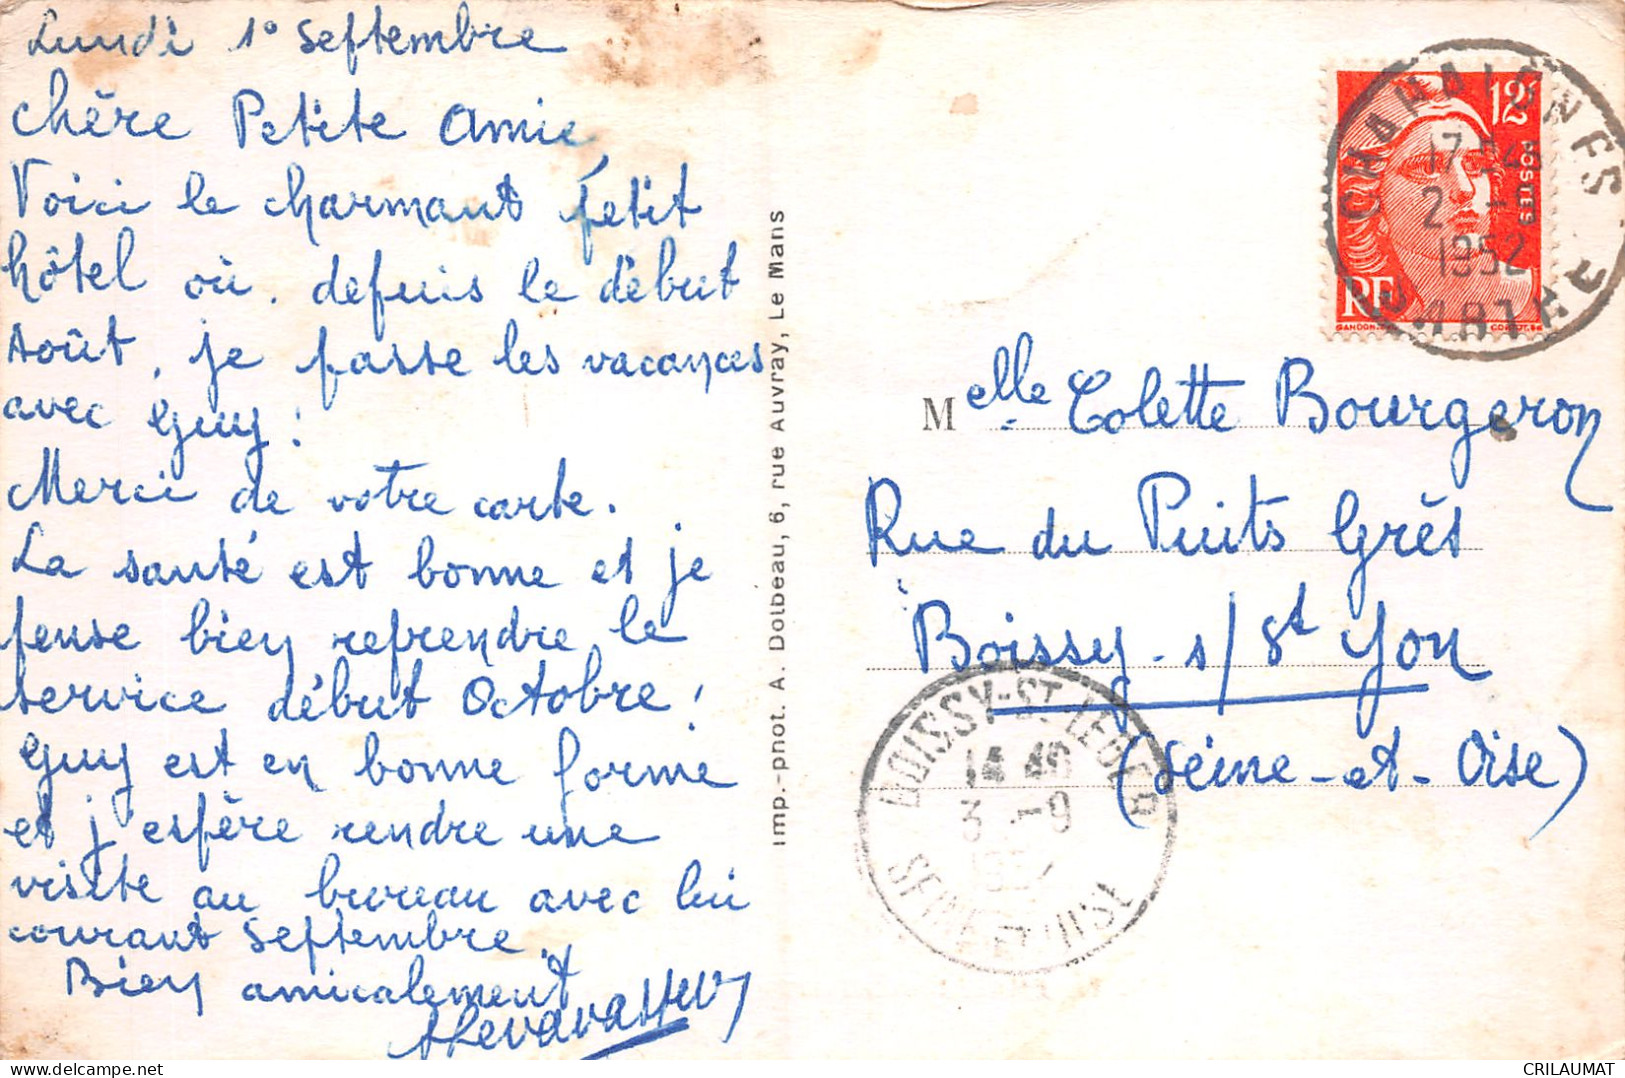 Lundi 1° Septembre
Chère Petite Amie,
Voici le charmant petit
hôtel où, depuis le début
Août, je passe les vacances
avec Guy!
Merci de votre carte.
La santé est bonne et je
pense bien reprendre le
service début Octobre!
Guy est en bonne forme
et j'espère rendre une
visite au bureau avec lui
courant Septembre.
Bien amicalement
Imp.-phot. A. Dolbeau, 6, rue Auvray, Le Mans
12F
POSTES
RF
GANDON
CHAHAIGNES
17 45
2 -9
1952
SARTHE
Melle Colette Bourgeron
Rue du Puits Grès
Boissy-s/St Yon
(Seine-et-Oise)
BOISSY-ST-LEGER
14 40
3 -9
SEINE-ET-OISE
CRILAUMAT